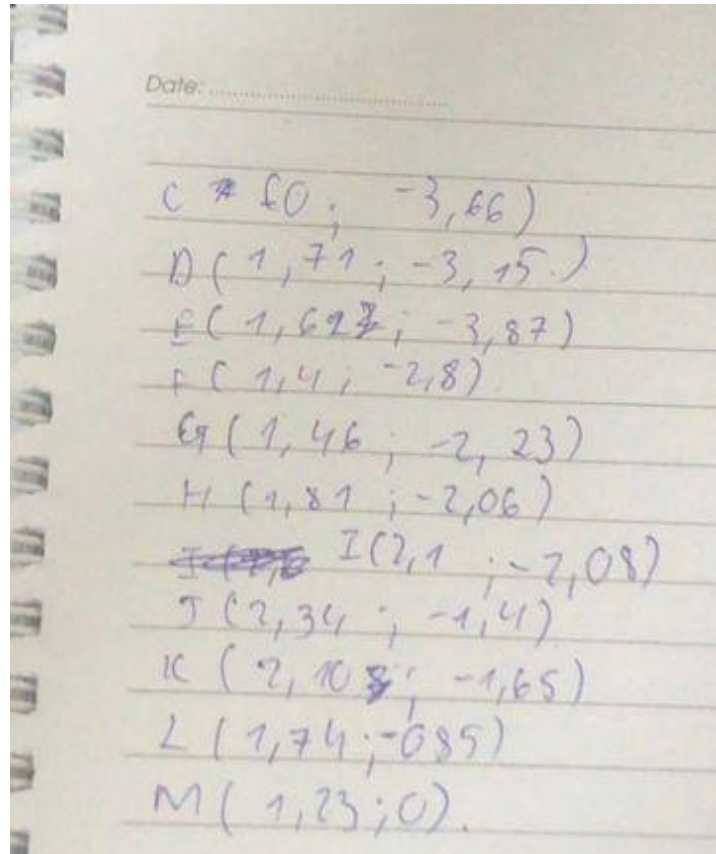 Date: ........................
C (0; -3,66)
D (1,71; -3,15.)
E (1,69; -3,87)
F (1,4; -2,8)
G (1,46; -2,23)
H (1,81; -2,06)
I (2,1; -2,08)
J (2,34; -1,4)
K (2,10; -1,65)
L (1,74; -085)
M (1,23; 0).